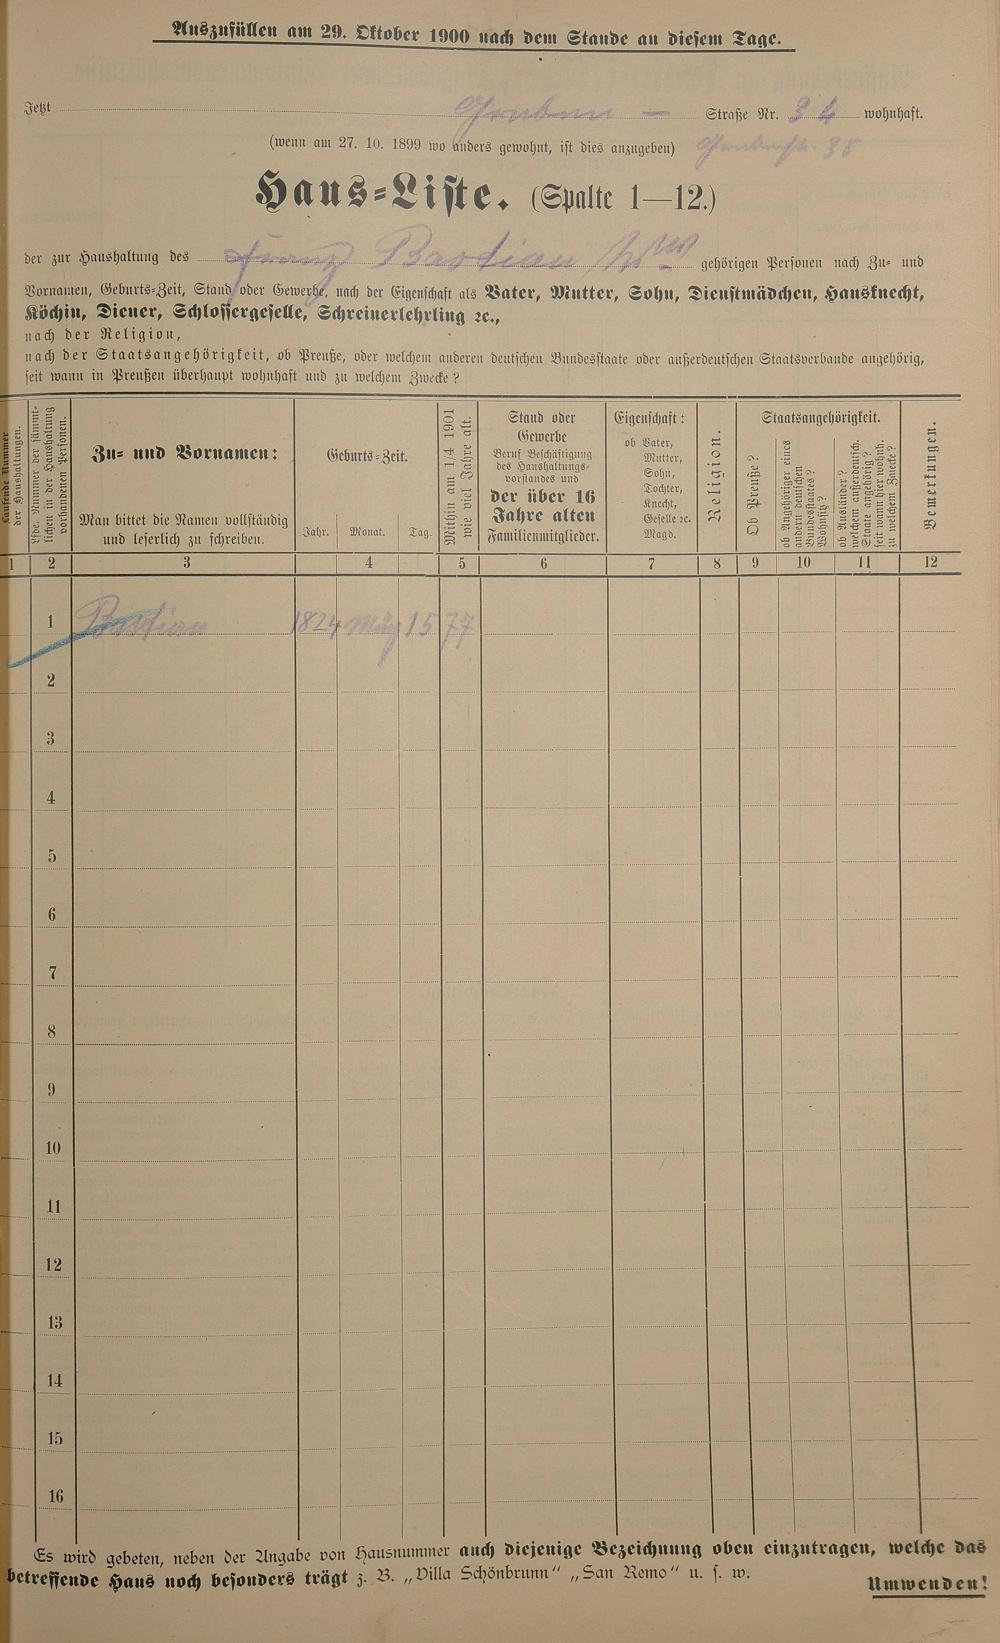 Auszufüllen am 29. Oktober 1900 nach dem Stande an diesem Tage.
Jetzt Graben — Straße Nr. 34 wohnhaft.
(wenn am 27. 10. 1899 wo anders gewohnt, ist dies anzugeben) Grabenstr. 38
Haus-Liste. (Spalte 1—12.)
der zur Haushaltung des Franz Bastian Www gehörigen Personen nach Zu- und
Vornamen, Geburts-Zeit, Stand oder Gewerbe, nach der Eigenschaft als Vater, Mutter, Sohn, Dienstmädchen, Hausknecht,
Köchin, Diener, Schlossergeselle, Schreinerlehrling ꝛc.,
nach der Religion,
nach der Staatsangehörigkeit, ob Preuße, oder welchem anderen deutschen Bundesstaate oder außerdeutschen Staatsverbande angehörig,
seit wann in Preußen überhaupt wohnhaft und zu welchem Zwecke?
Laufende Nummer
der Haushaltungen.
Lfde. Nummer der sämmt-
lichen in der Haushaltung
vorhandenen Personen.
Zu- und Vornamen:
Man bittet die Namen vollständig
und leserlich zu schreiben.
Geburts-Zeit.
Jahr. Monat. Tag.
Mithin am 1/4 1901
wie viel Jahre alt.
Stand oder
Gewerbe
Beruf Beschäftigung
des Haushaltungs-
vorstandes und
der über 16
Jahre alten
Familienmitglieder.
Eigenschaft:
ob Vater,
Mutter,
Sohn,
Tochter,
Knecht,
Geselle ꝛc.
Magd.
Religion.
Staatsangehörigkeit.
Ob Preuße?
ob Angehöriger eines
andern deutschen
Bundesstaates?
Wohnsitz?
ob Ausländer?
welchem außerdeutsch.
Staate angehörig?
seit wann hier wohnh.
zu welchem Zwecke?
Bemerkungen.
1 2 3 4 5 6 7 8 9 10 11 12
1 Bastian 1824 März 15 77
2
3
4
5
6
7
8
9
10
11
12
13
14
15
16
Es wird gebeten, neben der Angabe von Hausnummer auch diejenige Bezeichnung oben einzutragen, welche das
betreffende Haus noch besonders trägt z. B. „Villa Schönbrunn“ „San Remo“ u. s. w.
Umwenden!